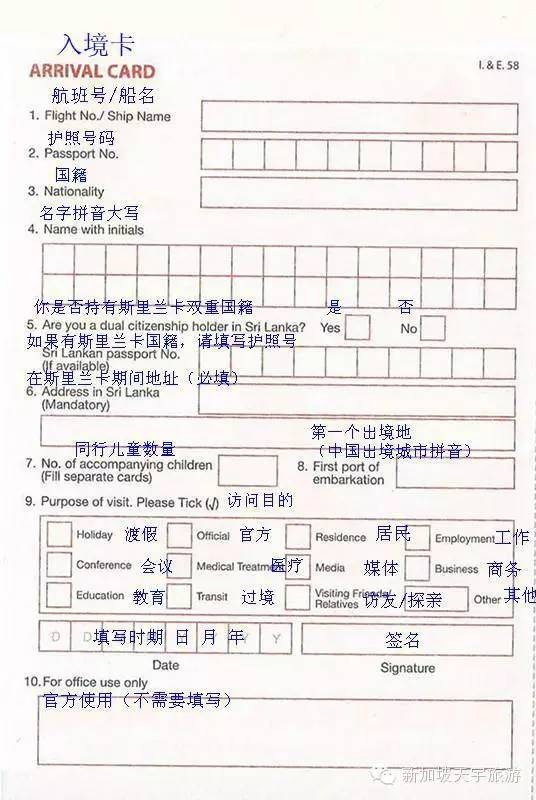 入境卡
ARRIVAL CARD
I. & E. 58
航班号/船名
1. Flight No./ Ship Name
护照号码
2. Passport No.
国籍
3. Nationality
名字拼音大写
4. Name with initials
你是否持有斯里兰卡双重国籍 是 否
5. Are you a dual citizenship holder in Sri Lanka? Yes No
如果有斯里兰卡国籍，请填写护照号
Sri Lankan passport No.
(If available)
在斯里兰卡期间地址（必填）
6. Address in Sri Lanka
(Mandatory)
同行儿童数量
第一个出境地
（中国出境城市拼音）
7. No. of accompanying children
(Fill separate cards)
8. First port of
embarkation
9. Purpose of visit. Please Tick (√) 访问目的
Holiday 渡假 Official 官方 Residence 居民 Employment 工作
Conference 会议 Medical Treatment 医疗 Media 媒体 Business 商务
Education 教育 Transit 过境 Visiting Friends/
Relatives 访友/探亲 Other 其他
D D Y Y
填写时期 日 月 年
签名
Date
Signature
10. For office use only
官方使用（不需要填写）
新加坡天宇旅游